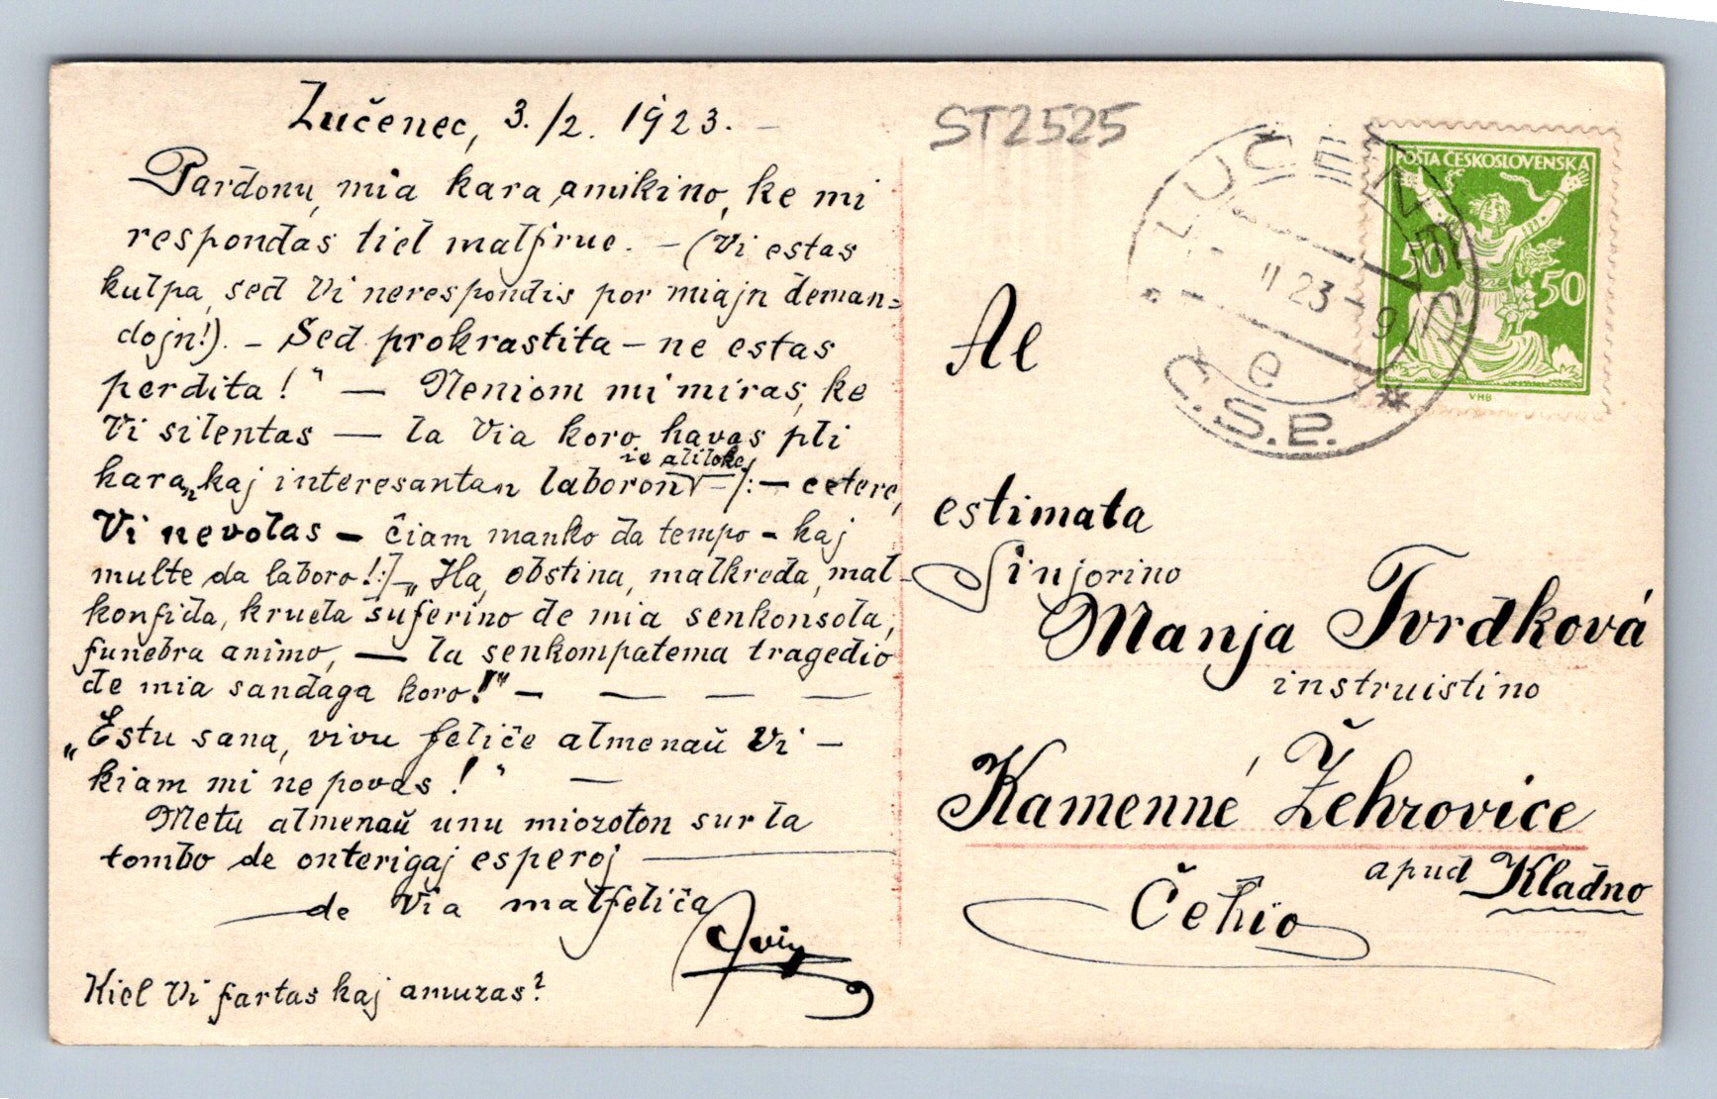 Lučenec, 3./2. 1923. –
Pardonu, mia kara amikino, ke mi
respondas tiel malfrue. – (Vi estas
kulpa, sed Vi nerespondis por miajn deman=
dojn!). – Sed prokrastita – ne estas
perdita!" — Neniom mi miras, ke
Vi silentas — la Via koro havas pli
ie aliloke
karan, kaj interesantan laboron – /:– cetere,
Vi nevolas – ĉiam manko da tempo – kaj
multe da laboro!:/– „Ha, obstina, malkreda, mal-
konfida, kruela suferino de mia senkonsola,
funebra animo, — la senkompatema tragedio
de mia sandaga koro!" – — — —
„Estu sana, vivu feliĉe almenaŭ Vi –
kiam mi ne povas!" —
Metu almenaŭ unu miozoton sur la
tombo de onterigaj esperoj —
— de Via malfeliĉa
Kiel Vi fartas kaj amuzas?
ST2525
POŠTA ČESKOSLOVENSKÁ
50 50
VHB
LUČENEC
II 23 – 9
e
Č.S.P. *
Al
estimata
Sinjorino
Manja Tvrdková
instruistino
Kamenné Žehrovice
apud Kladno
Ĉeĥio